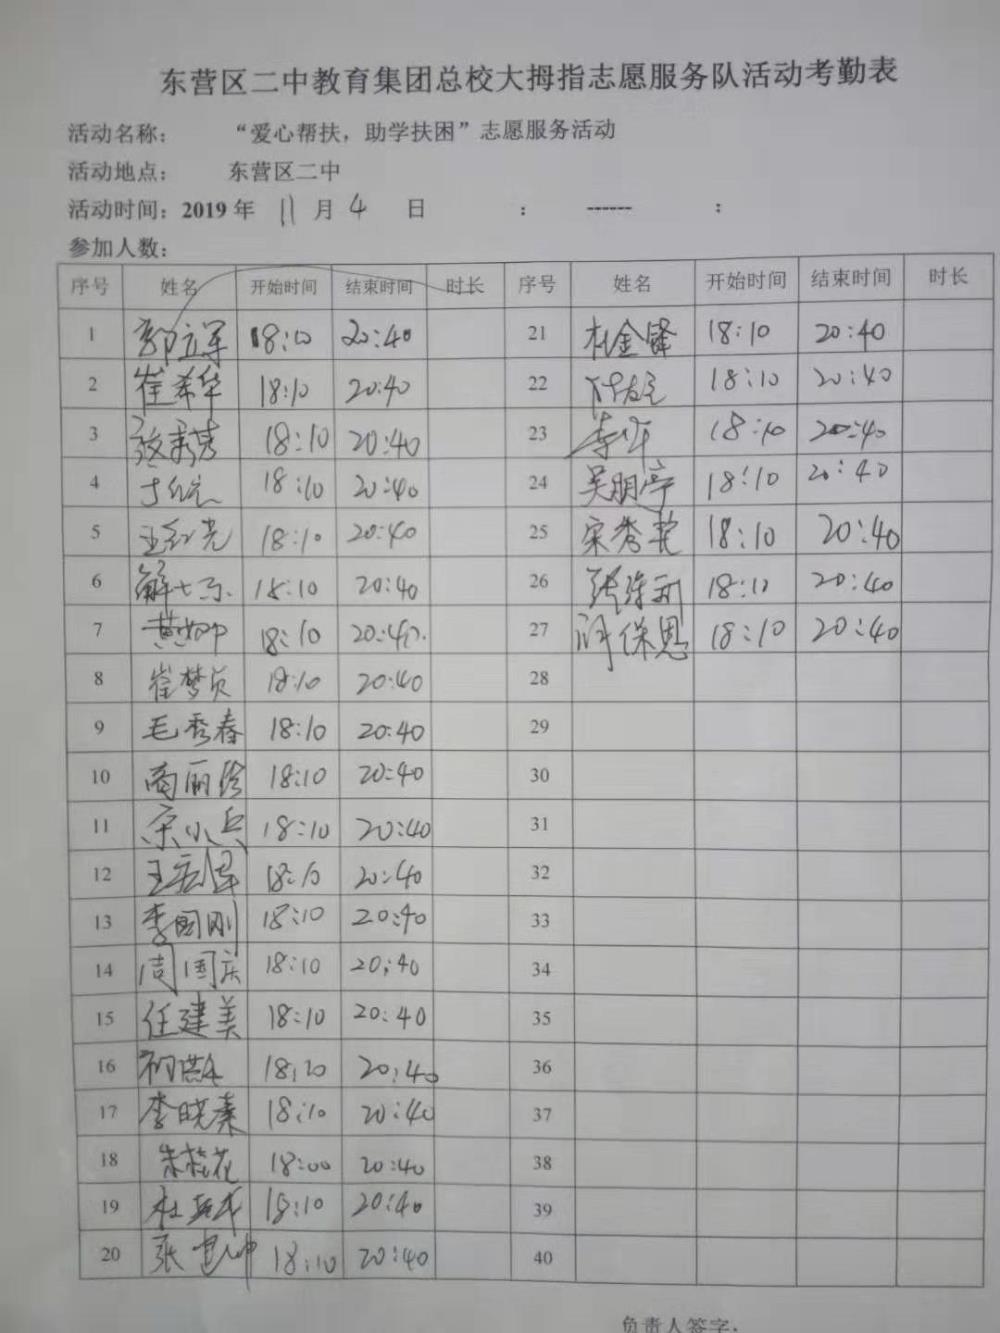 东营区二中教育集团总校大拇指志愿服务队活动考勤表
活动名称： “爱心帮扶，助学扶困”志愿服务活动
活动地点： 东营区二中
活动时间：2019 年 11 月 4 日 ： ------ ：
参加人数：
序号 姓名 开始时间 结束时间 时长 序号 姓名 开始时间 结束时间 时长
1 郭立军 18:10 20:40 21 杜金锋 18:10 20:40
2 崔希华 18:10 20:40 22 18:10 20:40
3 18:10 20:40 23 李军 18:10 20:40
4 18:10 20:40 24 吴朋亭 18:10 20:40
5 王红光 18:10 20:40 25 宋秀艳 18:10 20:40
6 18:10 20:40 26 18:10 20:40
7 18:10 20:40 27 保恩 18:10 20:40
8 崔梦贞 18:10 20:40 28
9 毛秀春 18:10 20:40 29
10 商丽珍 18:10 20:40 30
11 宋小兵 18:10 20:40 31
12 王 18:10 20:40 32
13 李国刚 18:10 20:40 33
14 周国庆 18:10 20:40 34
15 任建美 18:10 20:40 35
16 18:20 20:40 36
17 李晓秦 18:10 20:40 37
18 朱桂花 18:00 20:40 38
19 杜 18:10 20:40 39
20 张 18:10 20:40 40
负责人签字：